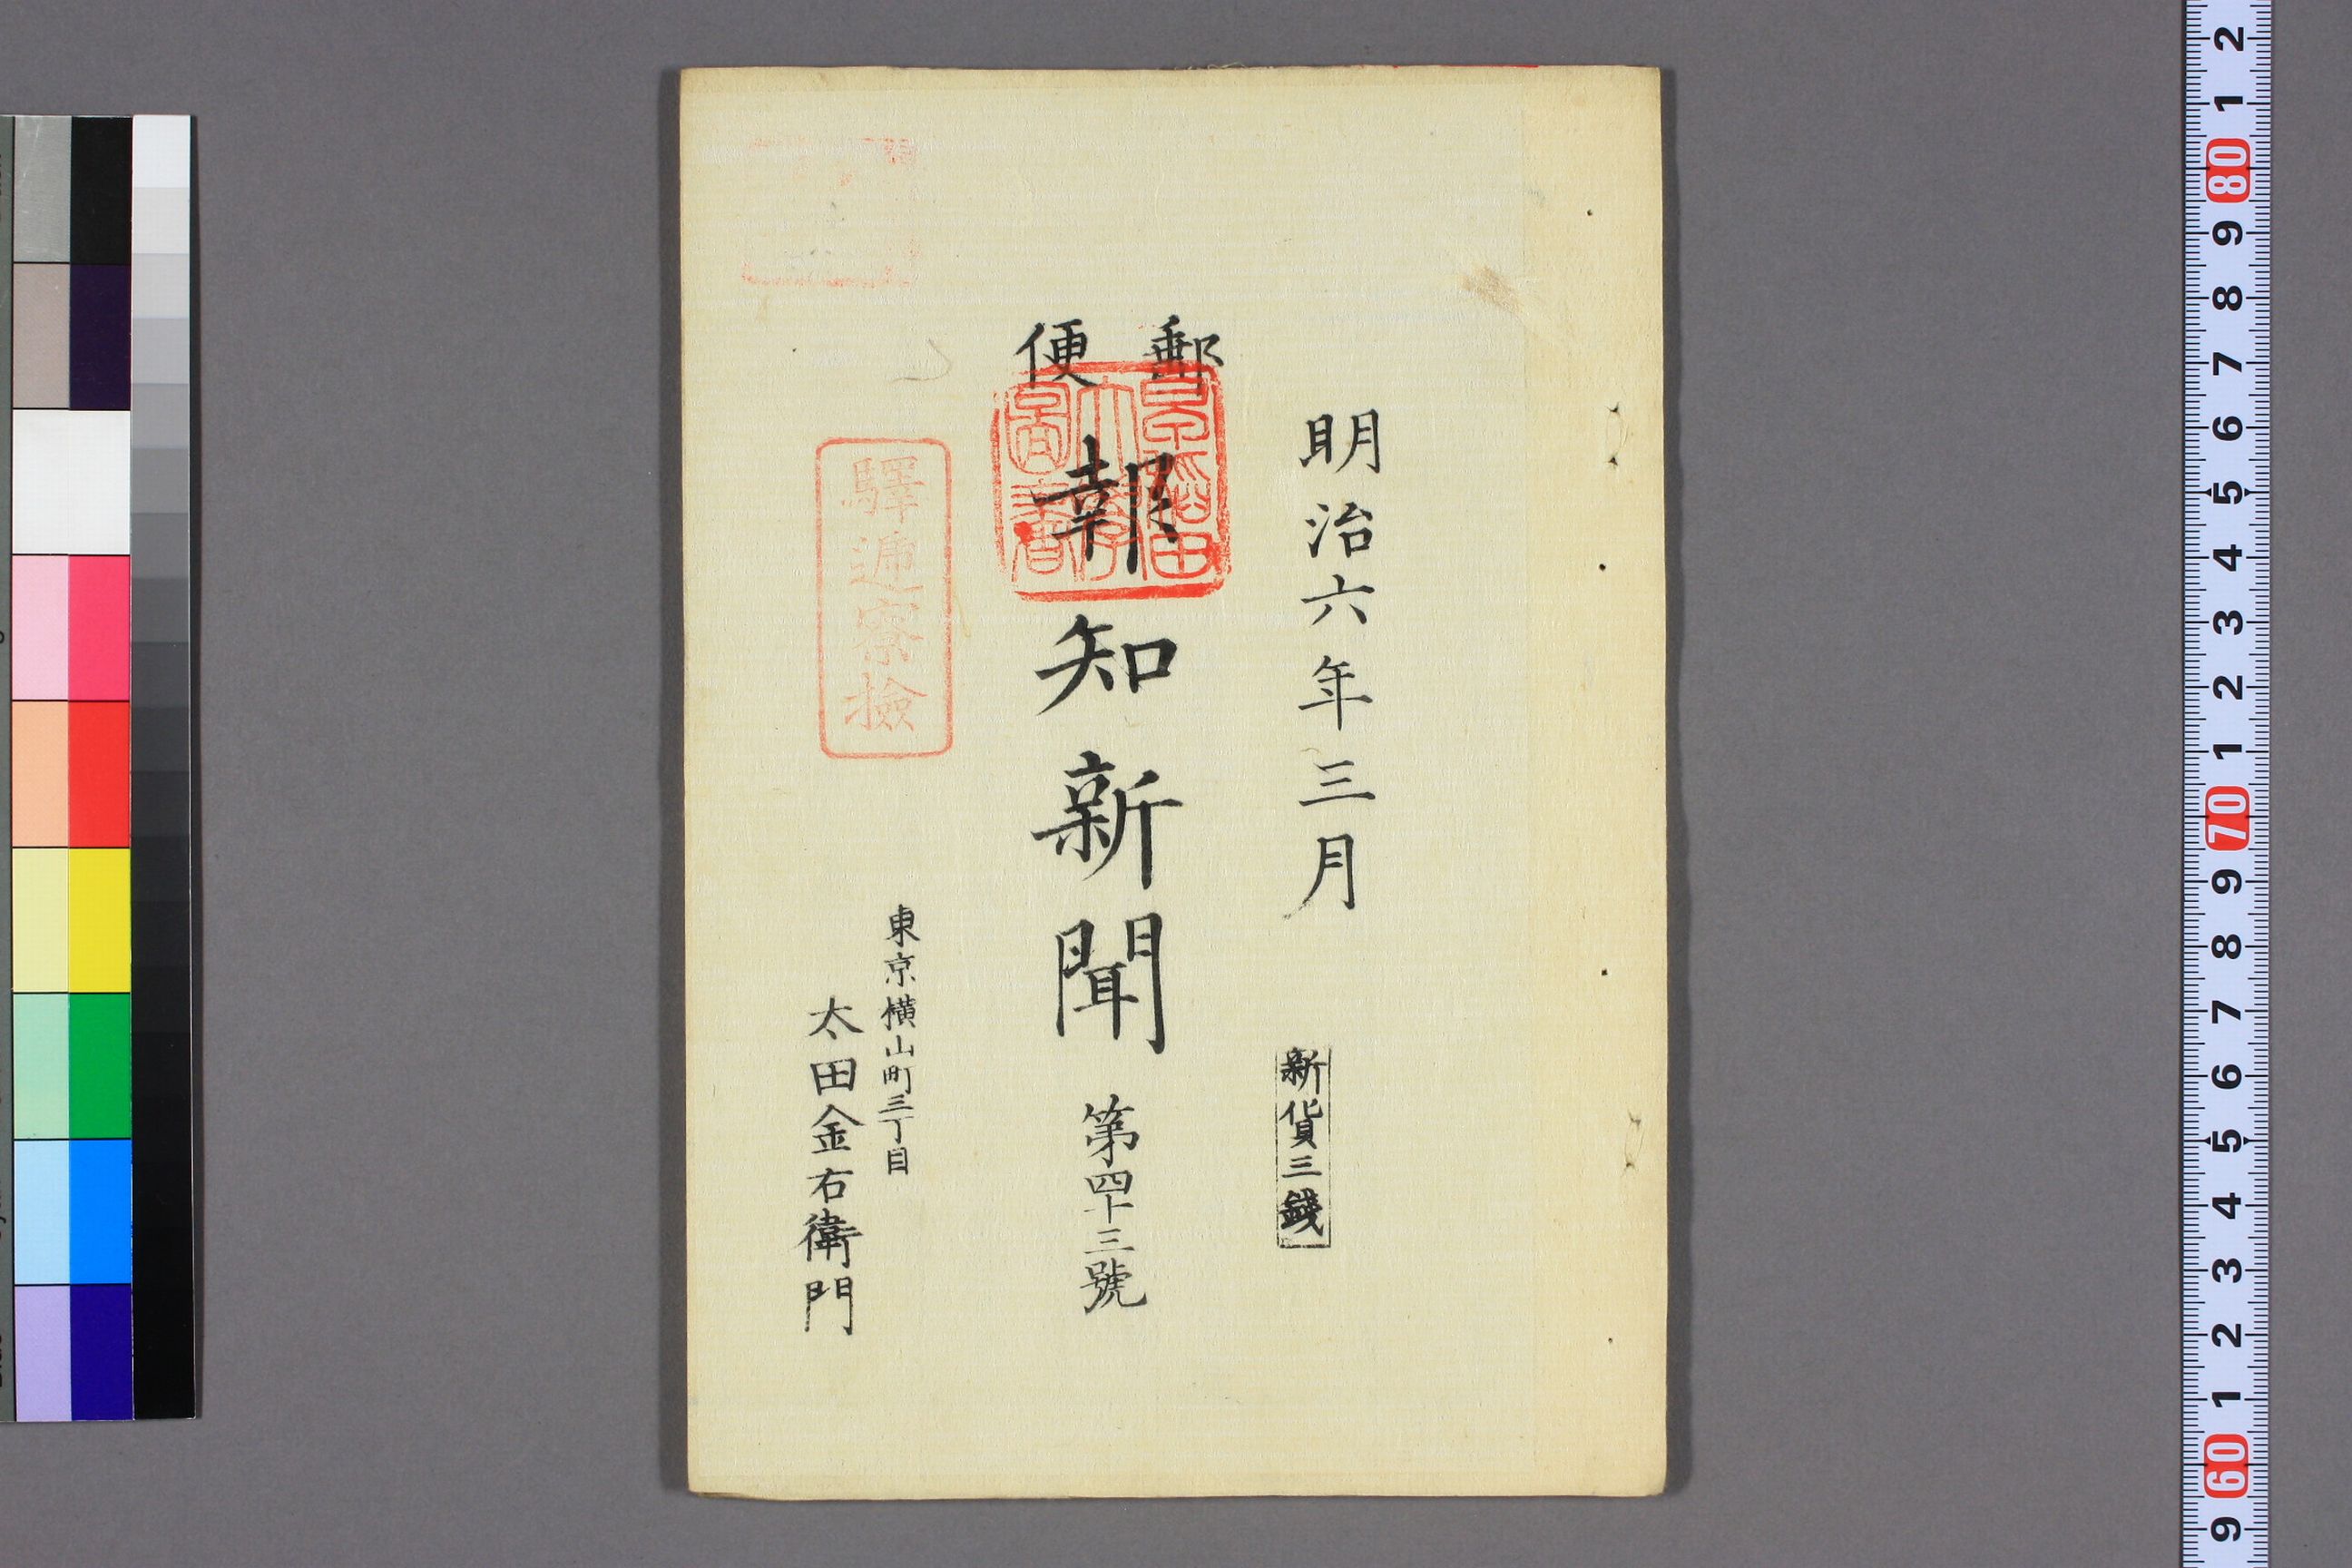 明治六年三月
新貨三錢
郵便
報知新聞
第四十三號
早稲田大学図書
驛逓寮検
東京横山町三丁目
太田金右衛門
2 1 80 9 8 7 6 5 4 3 2 1 70 9 8 7 6 5 4 3 2 1 60 9